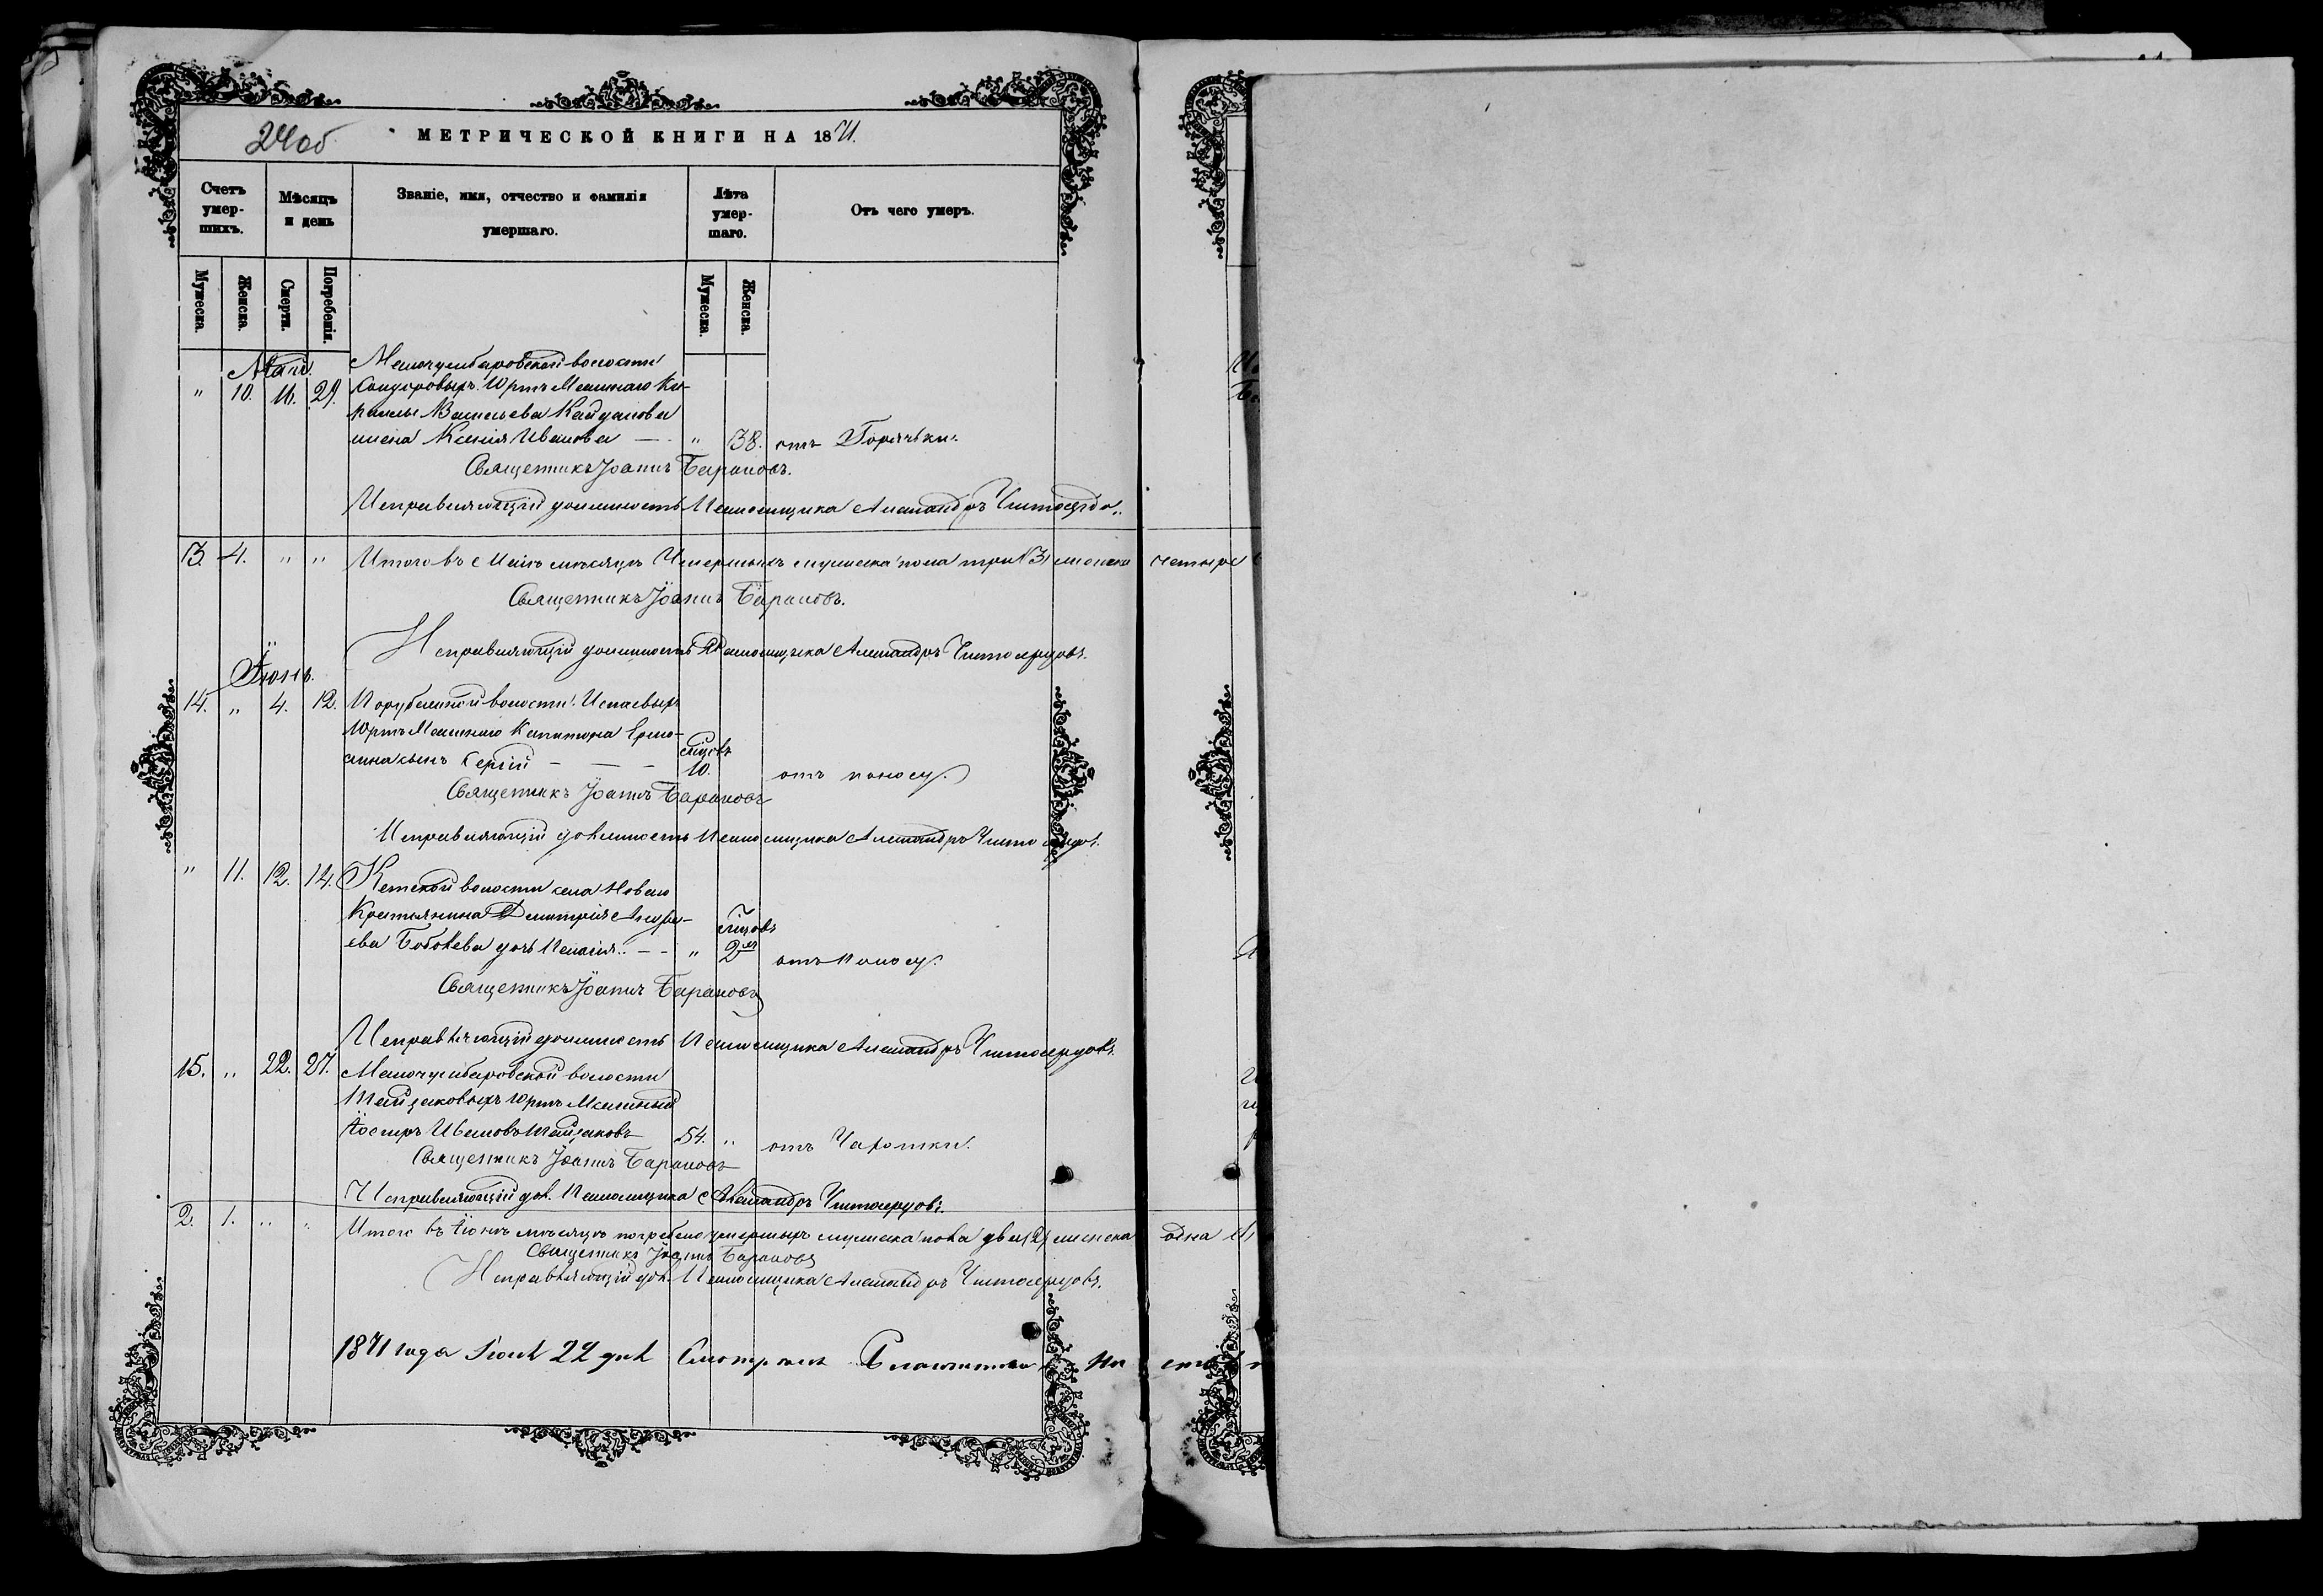 24об
МЕТРИЧЕСКОЙ КНИГИ НА 1871.
Счетъ умер-шихъ.
Мѣсяцъ и день
Званіе, имя, отчество и фамилія умершаго.
Лѣта умер-шаго.
Отъ чего умеръ.
Мужеска. Женска. Смерти. Погребенія. Мужеска. Женска.
Май.
волости
" 10. 16. 29. Юртъ
Васильева Кайдалова
жена Ксенія Иванова — " 38. отъ Горячьки.
Священникъ Іоаннъ Барановъ.
Исправляющій должность Псаломщика Александръ Чистосердо..
3. 4. " " Итого въ Маѣ мѣсяцѣ Умершихъ мужеска пола три /3/ женска четыре
Священникъ Іоаннъ Барановъ.
Исправляющій должность Псаломщика Александръ Чистосердовъ.
Іюнь.
14. " 4. 12. волости
Юртъ Капитона Ермо-
лина сынъ Сергій — — — мѣсяцовъ 10. отъ поносу.
Священникъ Іоаннъ Барановъ
Исправляющій должность Псаломщика Александръ Чистосердов.
" 11. 12. 14. Кетской волости села Новаго
Крестьянина Димитрія Андре-
ева дочь Пелагія.. — — " мѣсяцовъ 2хъ отъ поносу.
Священникъ Іоаннъ Барановъ
Исправляющій должность Псаломщика Александръ Чистосердовъ.
15. " 22. 27. волости
Юртъ
Ивановъ 54. " отъ Чахотки.
Священникъ Іоаннъ Барановъ
Исправляющій дол. Псаломщика Александръ Чистосердовъ.
2. 1. " " Итого въ Іюнѣ мѣсяцѣ погребено умершихъ мужеска пола два /2/ женска одна /1/
Священникъ Іоаннъ Барановъ
Исправляющій дол. Псаломщика Александръ Чистосердовъ.
1871 года Іюня 22 дня Смотрѣлъ Благочинный